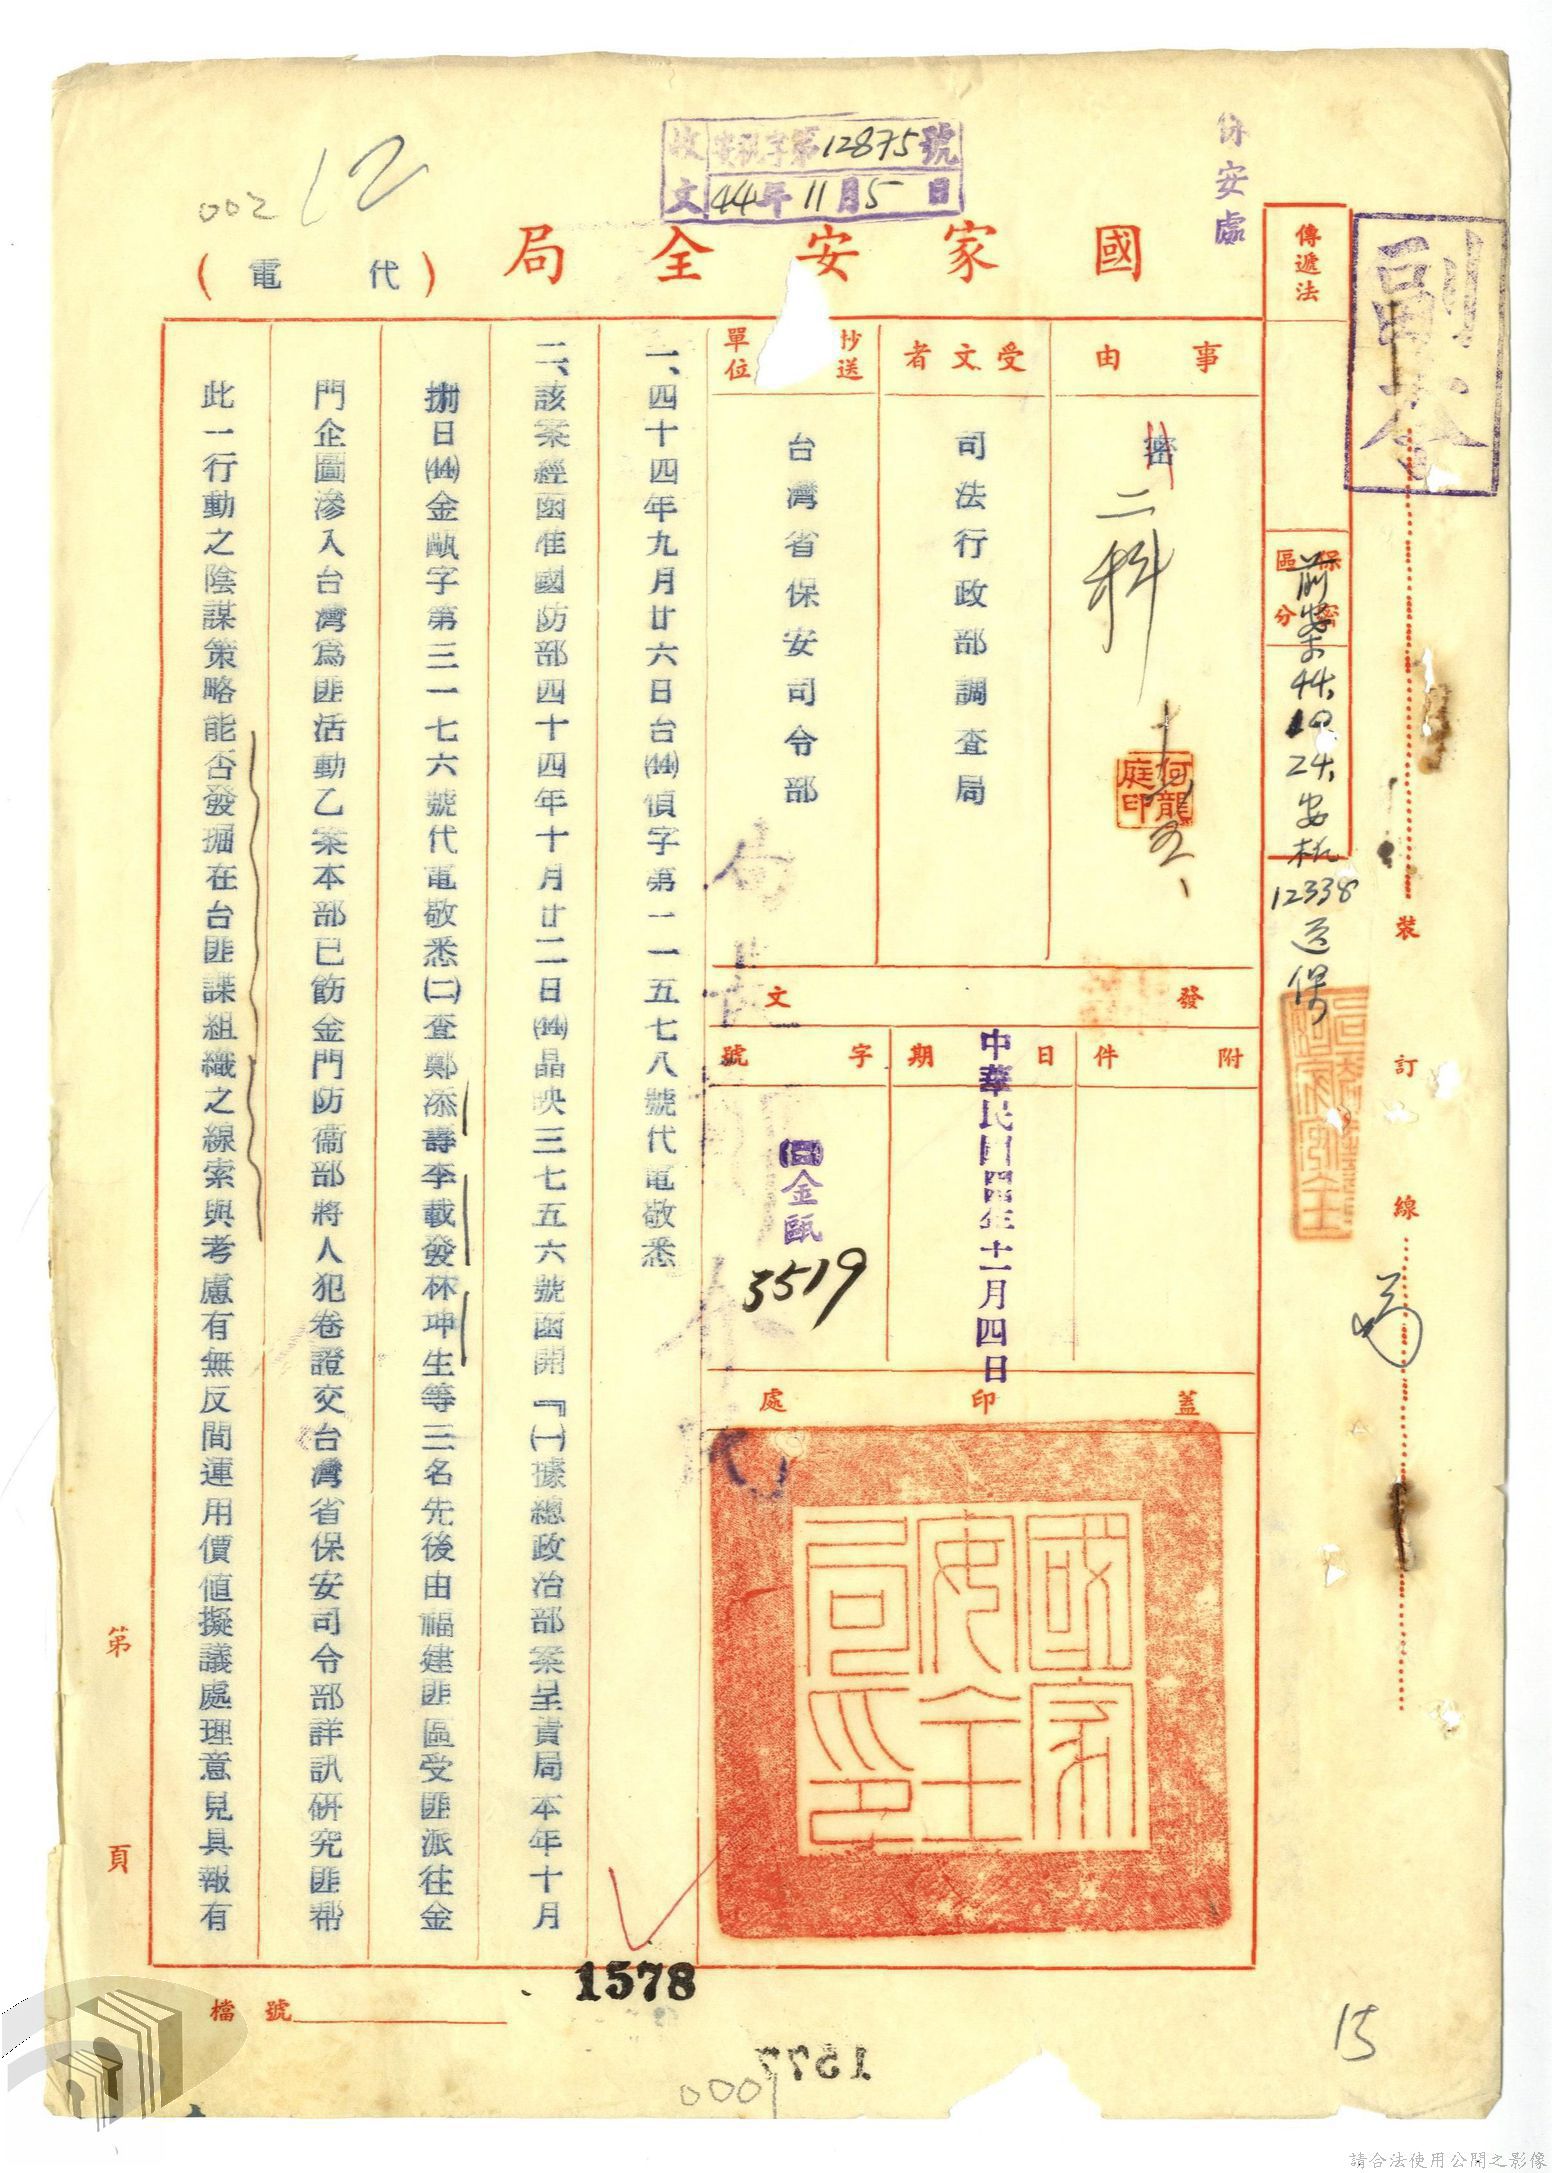 副本
保安處
傳遞法
保密區分
收文 字第12875號
44年11月5日
002
12
國家安全局
(代電)
事由
密
二科
何龍庭印
受文者
司法行政部調查局
抄送單位
台灣省保安司令部
發文
附件
日期
中華民國四四年十一月四日
字號
(四四)金甌
3519
蓋印處
國家安全局印
前案于44.10.24.安机12338送保
一、四十四年九月廿六日台(44)偵字第一一五七八號代電敬悉
二、該案經函准國防部四十四年十月廿二日(44)晶映三七五六號函開『(一)據總政治部案呈貴局本年十月
捌日(44)金甌字第三一七六號代電敬悉(二)查鄭添壽李載發林坤生等三名先後由福建匪區受匪派往金
門企圖滲入台灣爲匪活動乙案本部已飭金門防衞部將人犯卷證交台灣省保安司令部詳訊硏究匪幫
此一行動之陰謀策略能否發掘在台匪諜組織之線索與考慮有無反間運用價值擬議處理意見具報有
裝訂線
第 頁
檔號
1578
1577
0001
15
請合法使用公開之影像